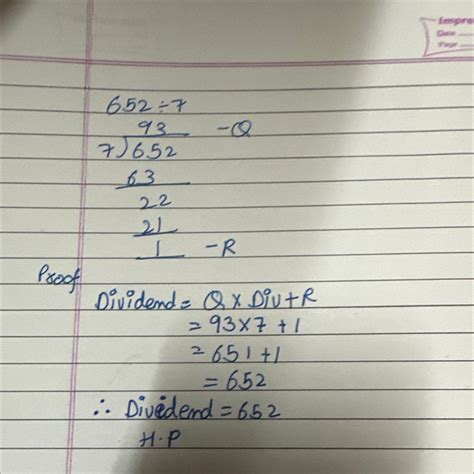 Date
Page
652÷7
93 -Q
7)652
63
22
21
1 -R
Proof
Dividend = Q × Div + R
= 93×7 +1
= 651 +1
= 652
∴ Dividend = 652
H.P